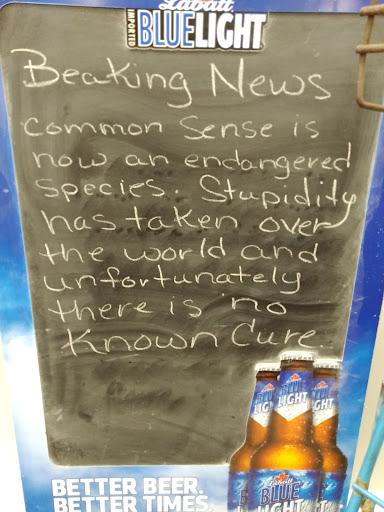 Labatt
IMPORTED
BLUE LIGHT
Beaking News
Common Sense is
now an endangered
species. Stupidity
has taken over
the world and
unfortunately
there is no
Known Cure.
BETTER BEER.
BETTER TIMES.
BLUE
LIGHT
Labatt
BLUE
LIGHT